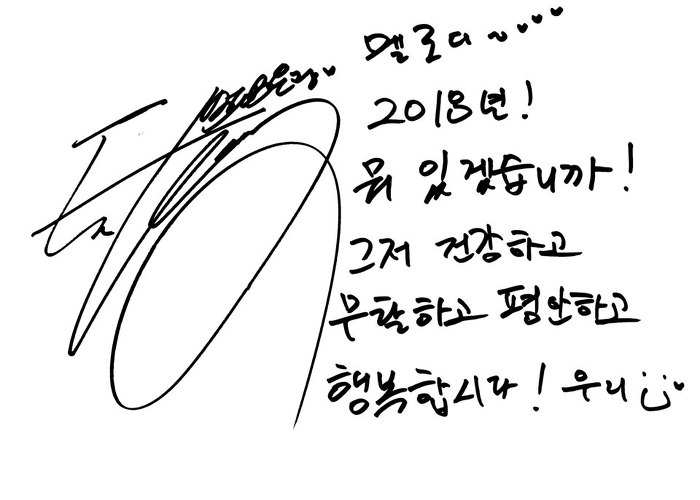 멜로디~♥♥♥♥
2018년!
뭐 있겠습니까!
그저 건강하고
무탈하고 평안하고
행복합시다! 우리 :)♥